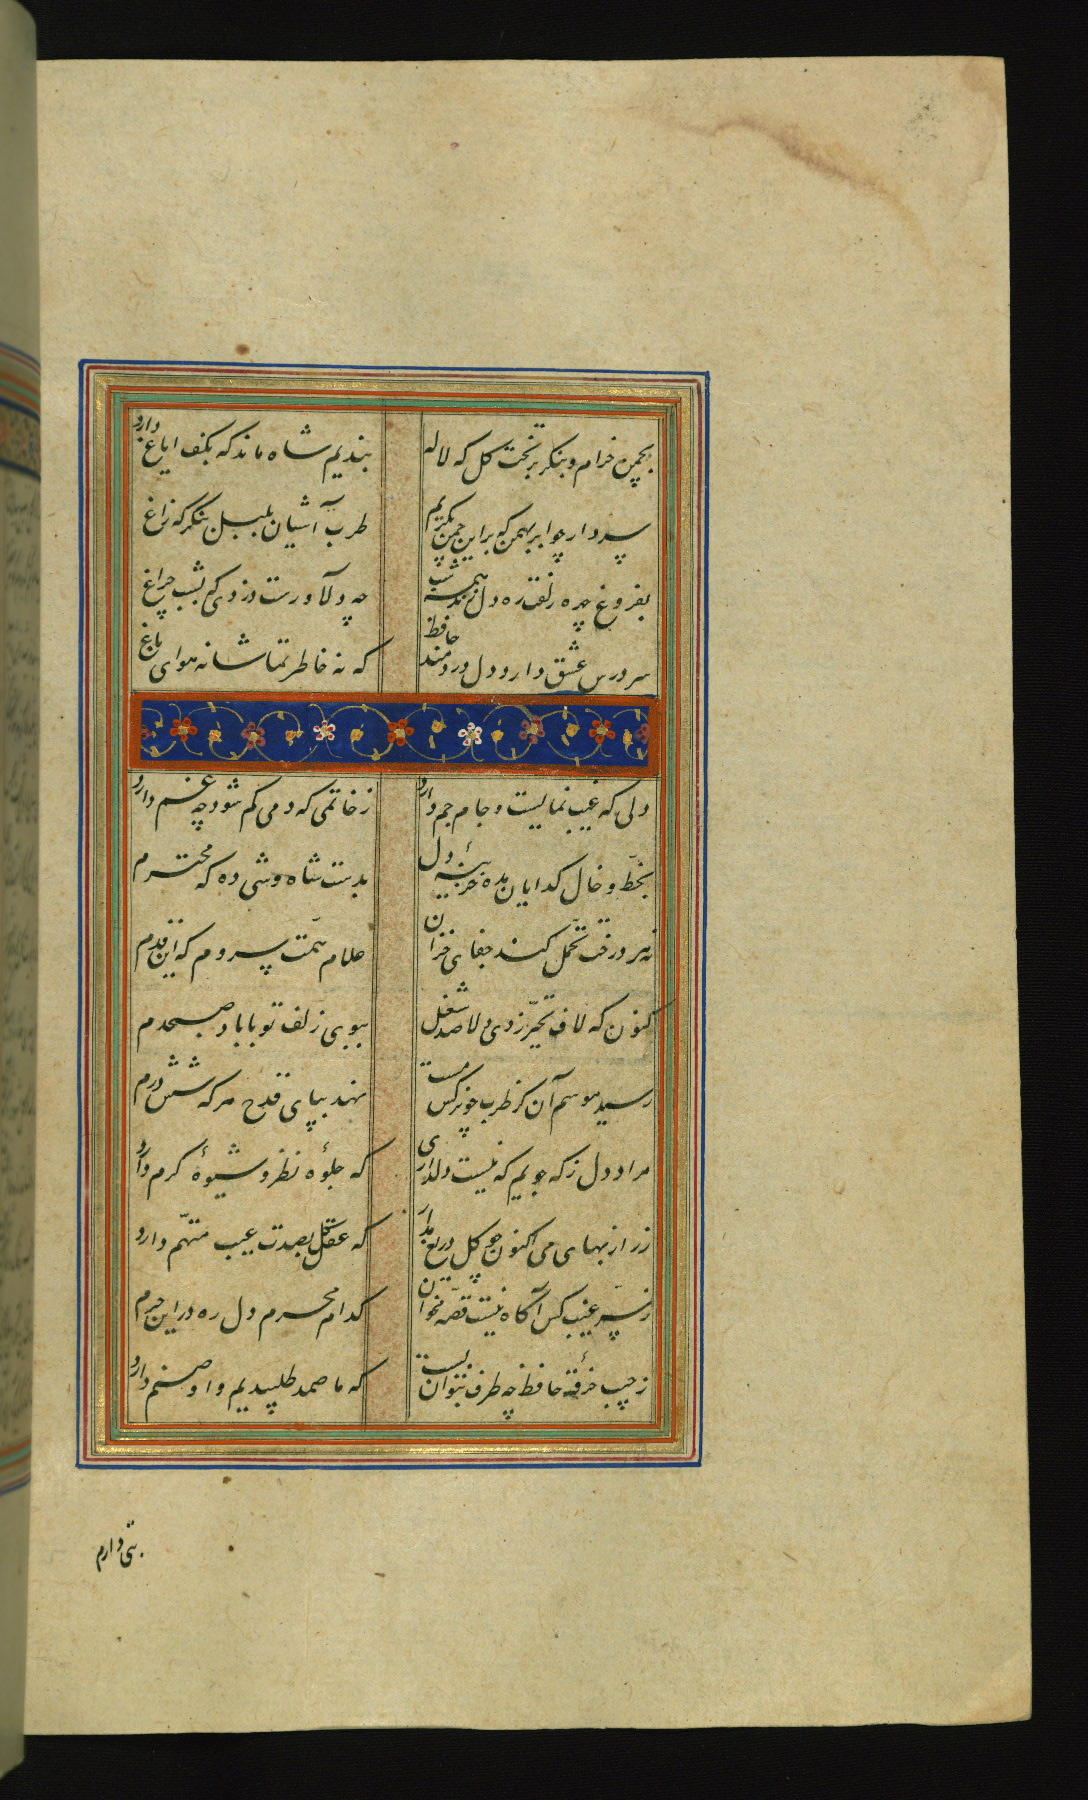 بچمن خرام و بنکر بر تخت کل که لاله
بندیم شاه ماند که بکف ایاغ دارد
سزد ار چو ابر بهمن که براین چمن بگریم
طرب آشیان بلبل بنکر که زاغ
بفروغ چهره زلفت ره دل زند همه شب
چه دلاورست دزدی که بشب چراغ
سر درس عشق دارد دل دردمند حافظ
که نه خاطر تماشا نه هوای باغ
دلی که غیب نمایست و جام جم دارد
ز خاتمی که دمی کم شود چه غم دارد
بخط و خال کدایان مده خزینهٔ دل
بدست شاه وشی ده که محترم
نه هر درخت تحمل کند جفای خزان
غلام همت سروم که این قدم
کنون که لاف تحیر زدی دلا صد شغل
ببوی زلف تو با باد صبحدم
رسید موسم آن کز طرب چو نرکس مست
نهد بپای قدح هر که شش درم
مراد دل ز که جویم که نیست دلداری
که جلوهٔ نظر و شیوهٔ کرم دارد
زر از بهای می اکنون چو کل دریغ مدار
که عقل کل بصدت عیب متهم دارد
ز سر غیب کس آکاه نیست قصه مخوان
کدام محرم دل ره در این حرم
ز جیب خرقهٔ حافظ چه طرف بتوان بست
که ما صمد طلبیدیم و او صنم دارد
بتی دارم